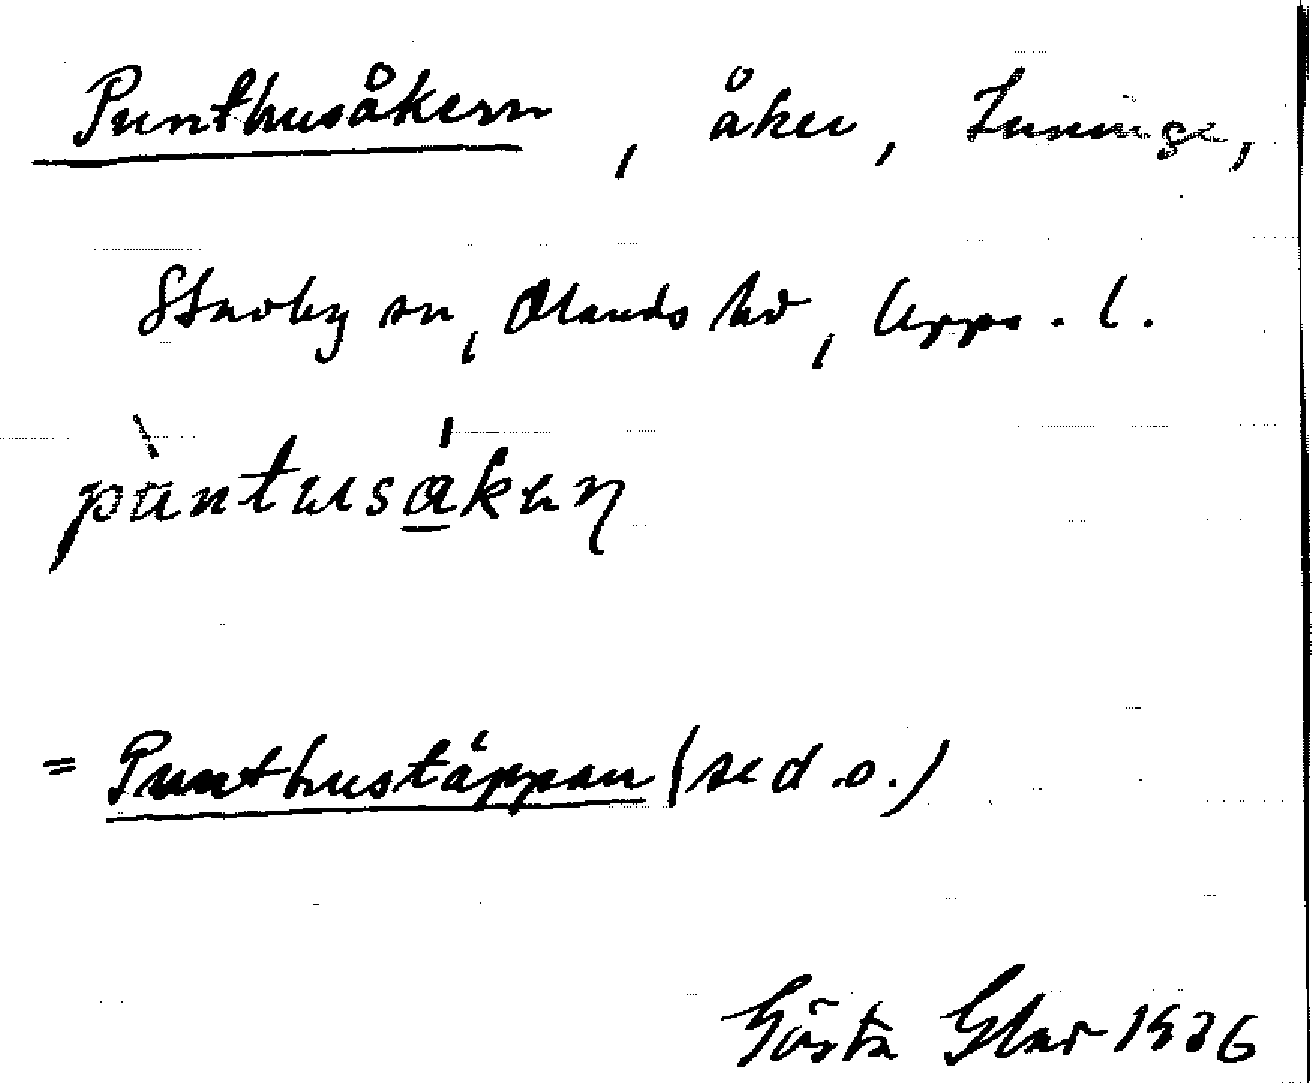 Punthusåkern, åker, Luninge,
Stavby sn, Olands hd, Upps. l.
= Punthustäppan (se d. o.)
Gösta 1936